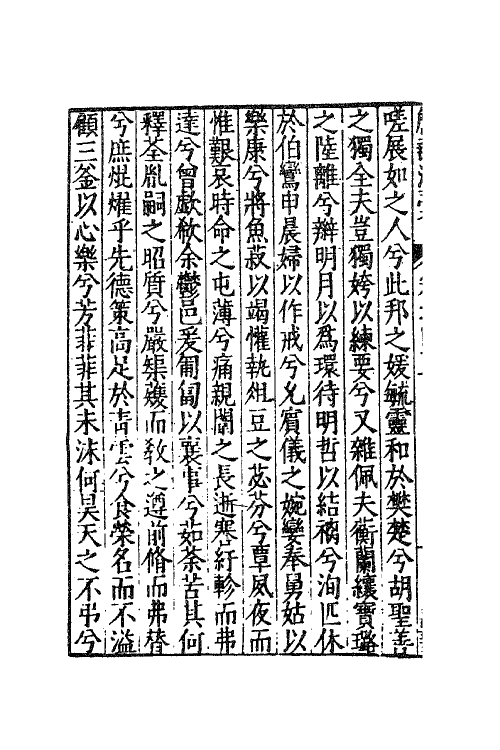 嗟展如之人兮此邦之媛毓靈和於樊楚兮胡聖善
之獨全夫豈獨姱以練要兮又雜佩夫蘅蘭纕寶璐
之陸離兮辮明月以為環待明哲以結褵兮洵匹休
於伯鸞申晨婦以作戒兮允賓儀之婉孌奉舅姑以
樂康兮將魚菽以竭懽執俎豆之苾芬兮覃夙夜而
惟艱哀時命之屯薄兮痛親闈之長逝蹇紆軫而弗
達兮曾歔欷余鬱邑爰匍匐以襄事兮茹荼苦其何
釋荃胤嗣之昭質兮嚴榘矱而敎之遵前脩而弗替
兮庶焜燿乎先德策高足於靑雲兮食榮名而不溢
顧三釜以心樂兮芳菲菲其未沬何昊天之不弔兮